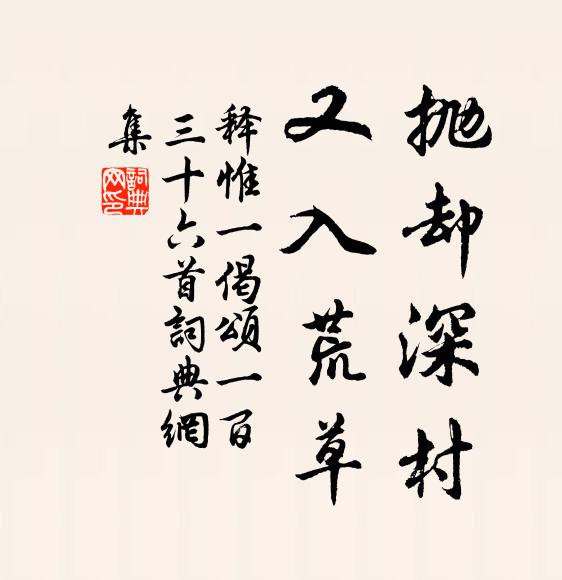 抛却深村
又入荒草
释惟一偈頌一百
三十六首詞典網
集
詞典
网印